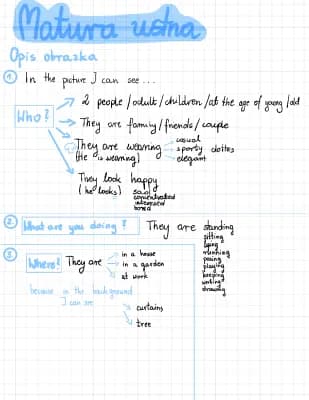 Matura ustna
Opis obrazka
① In the picture I can see...
Who?
2 people / adult / children / at the age of young / old
They are family / friends / couple
They are wearing
(He is wearing)
casual
sporty clothes
elegant
They look happy
(he looks) sad
concentrated
interested
bored
② What are you doing?
They are standing
sitting
lying
running
posing
playing
keeping
writing
drawing
③ Where?
They are
in a house
in a garden
at work
because in the background
I can see
curtains
tree